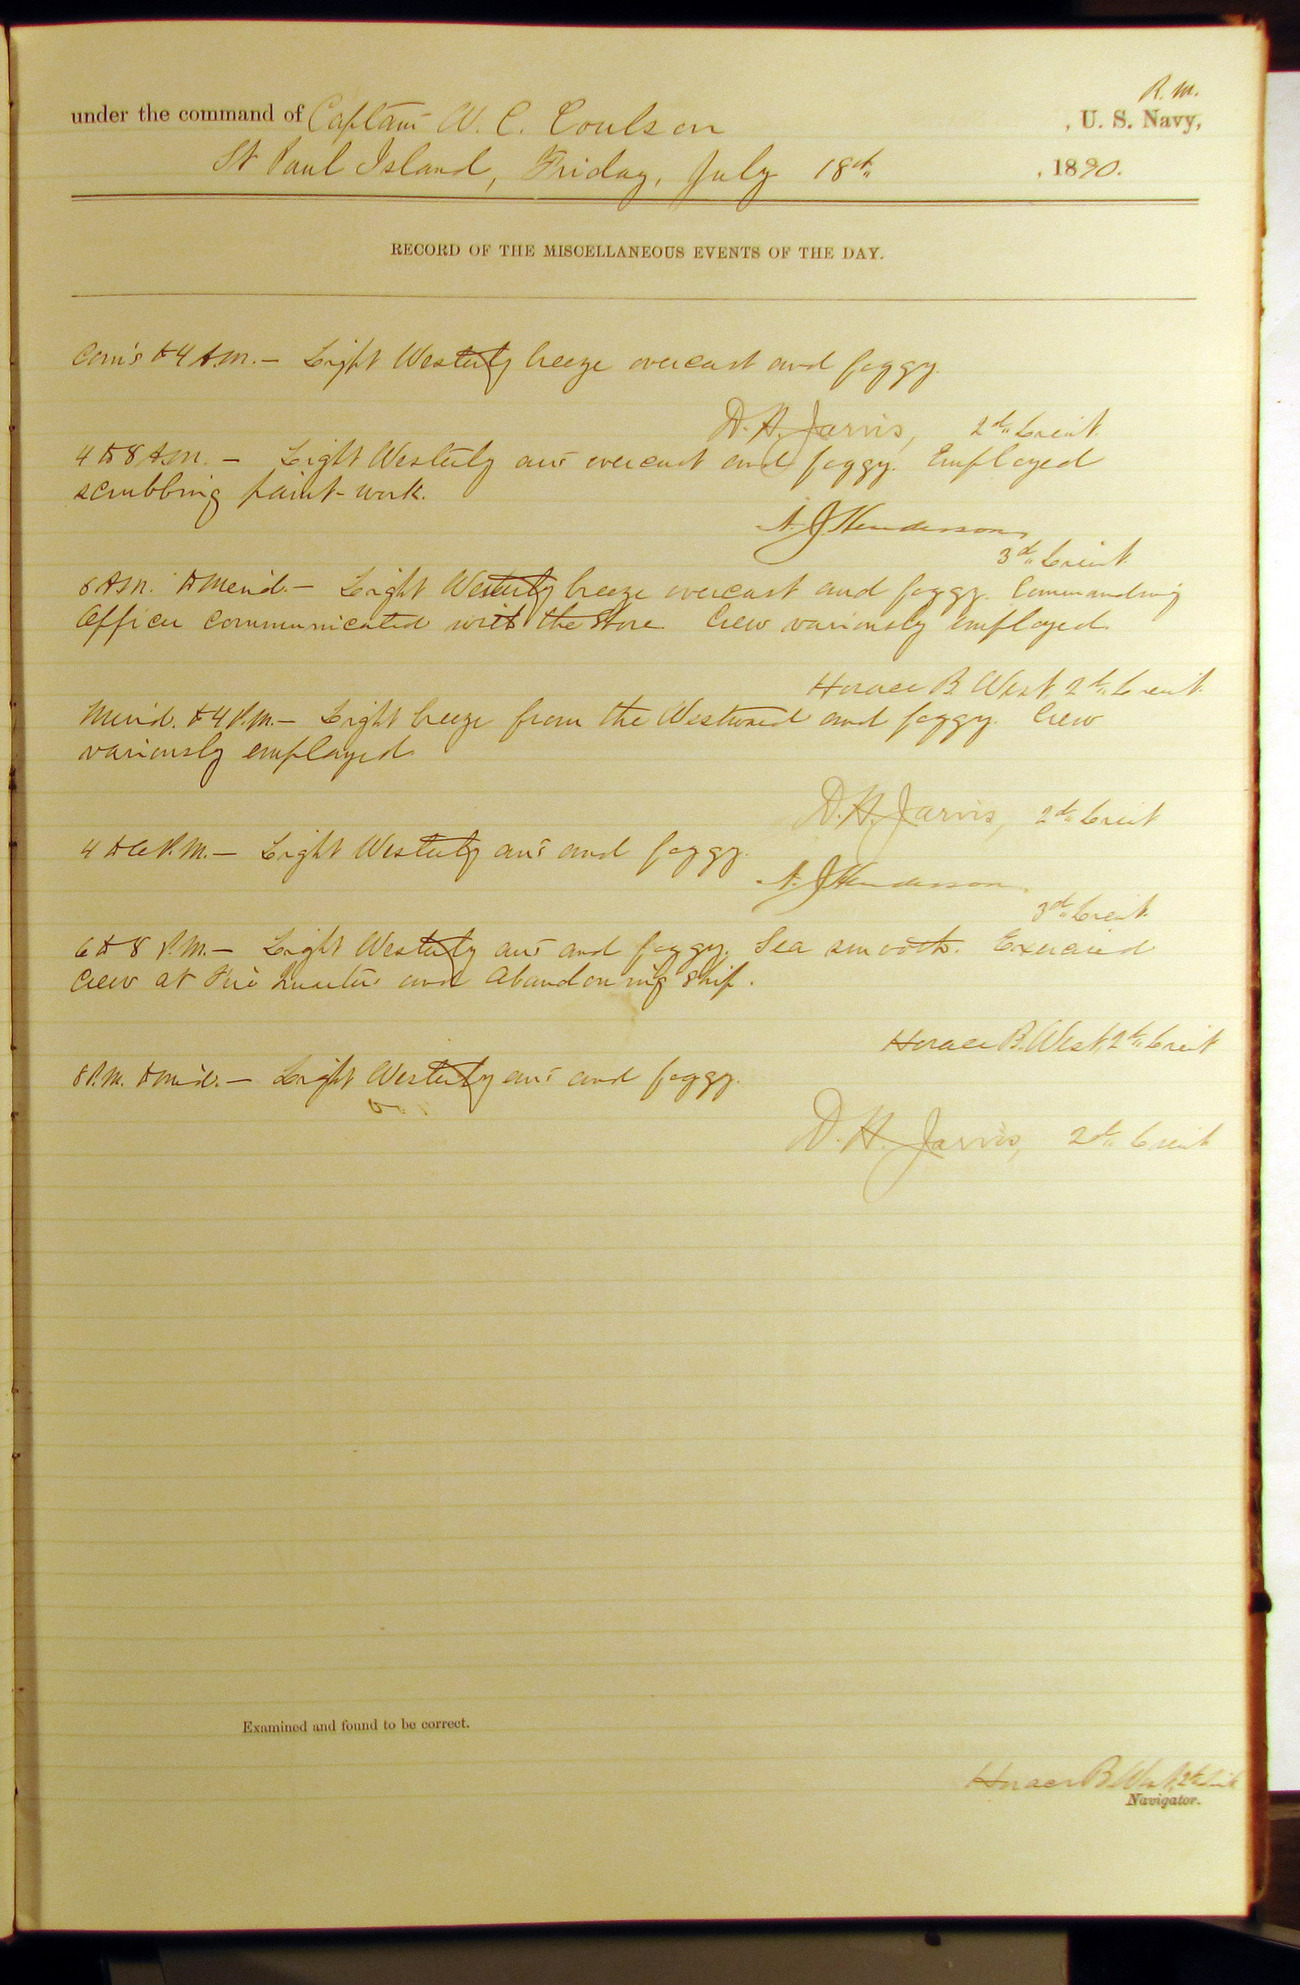 R. M.
under the command of Captain W. C. Coulson , U. S. Navy,
St Paul Island, Friday, July 18th , 1890.
RECORD OF THE MISCELLANEOUS EVENTS OF THE DAY.
Com's to 4 A.M. — Light Westerly breeze overcast and foggy.
D. H. Jarvis, 2d Lieut.
4 to 8 A.M. — Light Westerly air overcast and foggy. Employed
scrubbing paint-work.
A. J. Henderson
3d Lieut
8 A.M. to Merid. — Light Westerly breeze overcast and foggy. Commanding
Officer communicated with the Shore Crew variously employed.
Horace B. West 2d Lieut.
Merid. to 4 P.M. — Light breeze from the Westward and foggy. Crew
variously employed
D. H. Jarvis, 2d Lieut
4 to 6 P.M. — Light Westerly air and foggy.
A. J. Henderson
3d Lieut.
6 to 8 P.M. — Light Westerly air and foggy. Sea smooth. Exercised
Crew at Fire Quarters and Abandoning Ship.
Horace B. West, 2d Lieut
8 P.M. to mid. — Light Westerly air and foggy.
D. H. Jarvis, 2d Lieut
Examined and found to be correct.
Horace B. West, 2d Lieut
Navigator.